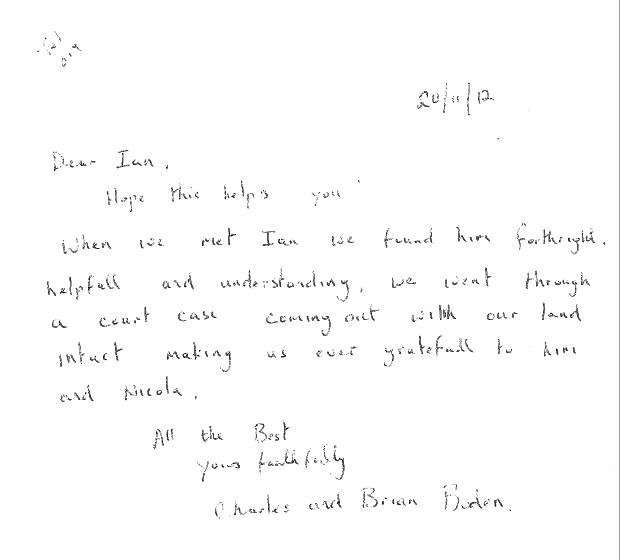 20/11/12
Dear Ian,
Hope this helps you
When we met Ian we found him forthright,
helpfull and understanding, we went through
a court case coming out with our land
intact making us ever gratefull to him
and Nicola.
All the Best
yours faithfully
Charles and Brian